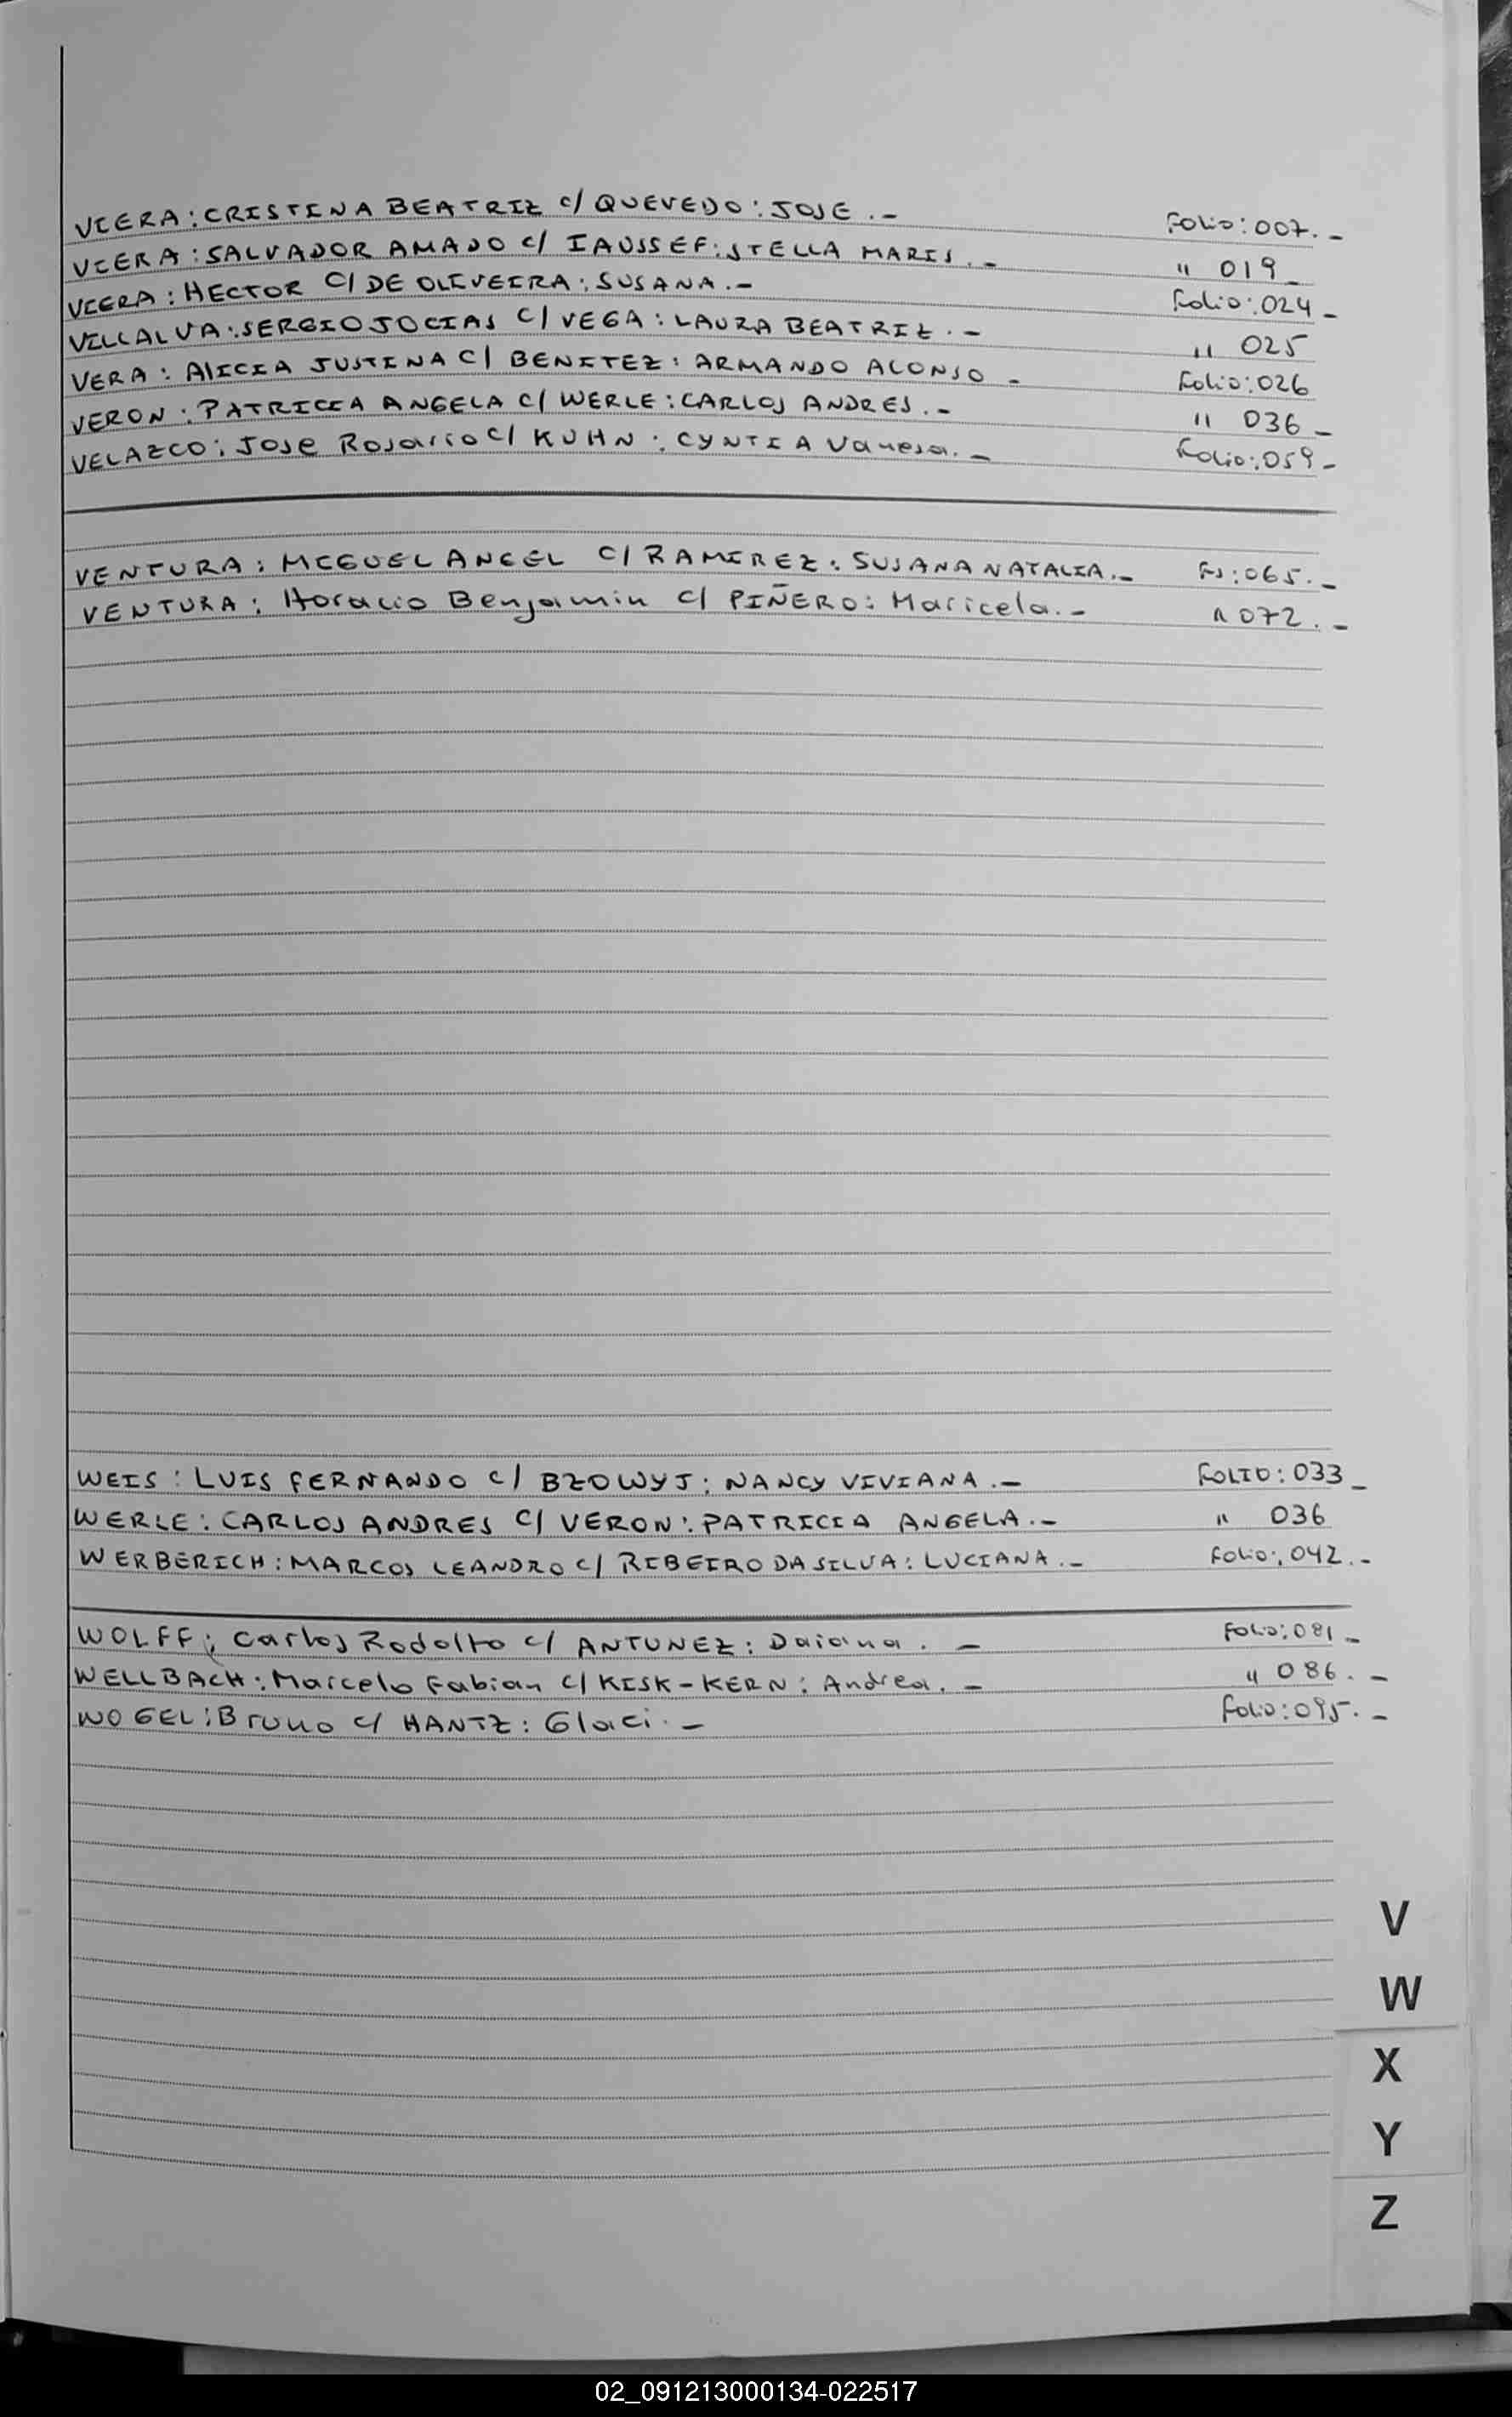 VIERA: CRISTINA BEATRIZ c/ QUEVEDO: JOSE.- Folio: 007.-
VIERA: SALVADOR AMADO c/ IAUSSEF: STELLA MARIS.- " 019_
VIERA: HECTOR C/ DE OLIVEIRA: SUSANA.- Folio: 024-
VILLALVA: SERGIO JOCIAS C/ VEGA: LAURA BEATRIZ.- " 025
VERA: AlICIA JUSTINA C/ BENITEZ: ARMANDO ALONSO - Folio: 026
VERON: PATRICIA ANGELA C/ WERLE: CARLOS ANDRES.- " 036-
VELAZCO: Jose Rosario c/ KUHN: CYNTIA Vanesa.- Folio: 059-
VENTURA: MIGUEL ANGEL C/ RAMIREZ: SUSANA NATALIA.- Fs: 065.-
VENTURA: Horacio Benjamin c/ PIÑERO: Maricela.- " 072.-
WEIS: LUIS FERNANDO c/ BZOWYJ: NANCY VIVIANA.- FOLIO: 033_
WERLE: CARLOS ANDRES C/ VERON: PATRICIA ANGELA.- " 036
WERBERICH: MARCOS LEANDRO c/ RIBEIRO DA SILVA: LUCIANA.- Folio: 042.-
WOLFF: Carlos Rodolfo c/ ANTUNEZ: Daiana.- Folio: 081-
WELLBACH: Marcelo Fabian c/ KISK-KERN: Andrea.- " 086.-
WOGEL: Bruno c/ HANTZ: Glaci.- Folio: 095.-
V
W
X
Y
Z
02_091213000134-022517